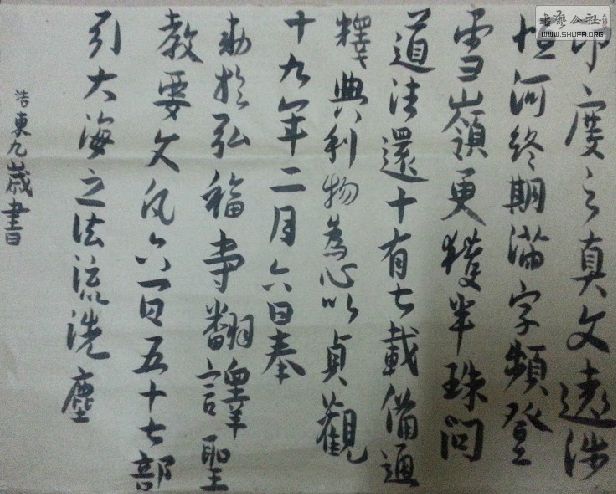 印度之真文遠涉
恒河終期滿字頻登
雪嶺更獲半珠問
道往還十有七載備通
釋典利物為心以貞觀
十九年二月六日奉
勅於弘福寺翻譯聖
教要文凡六百五十七部
引大海之法流洗塵
浩東九歲書
书艺公社
WWW.SHUFA.ORG